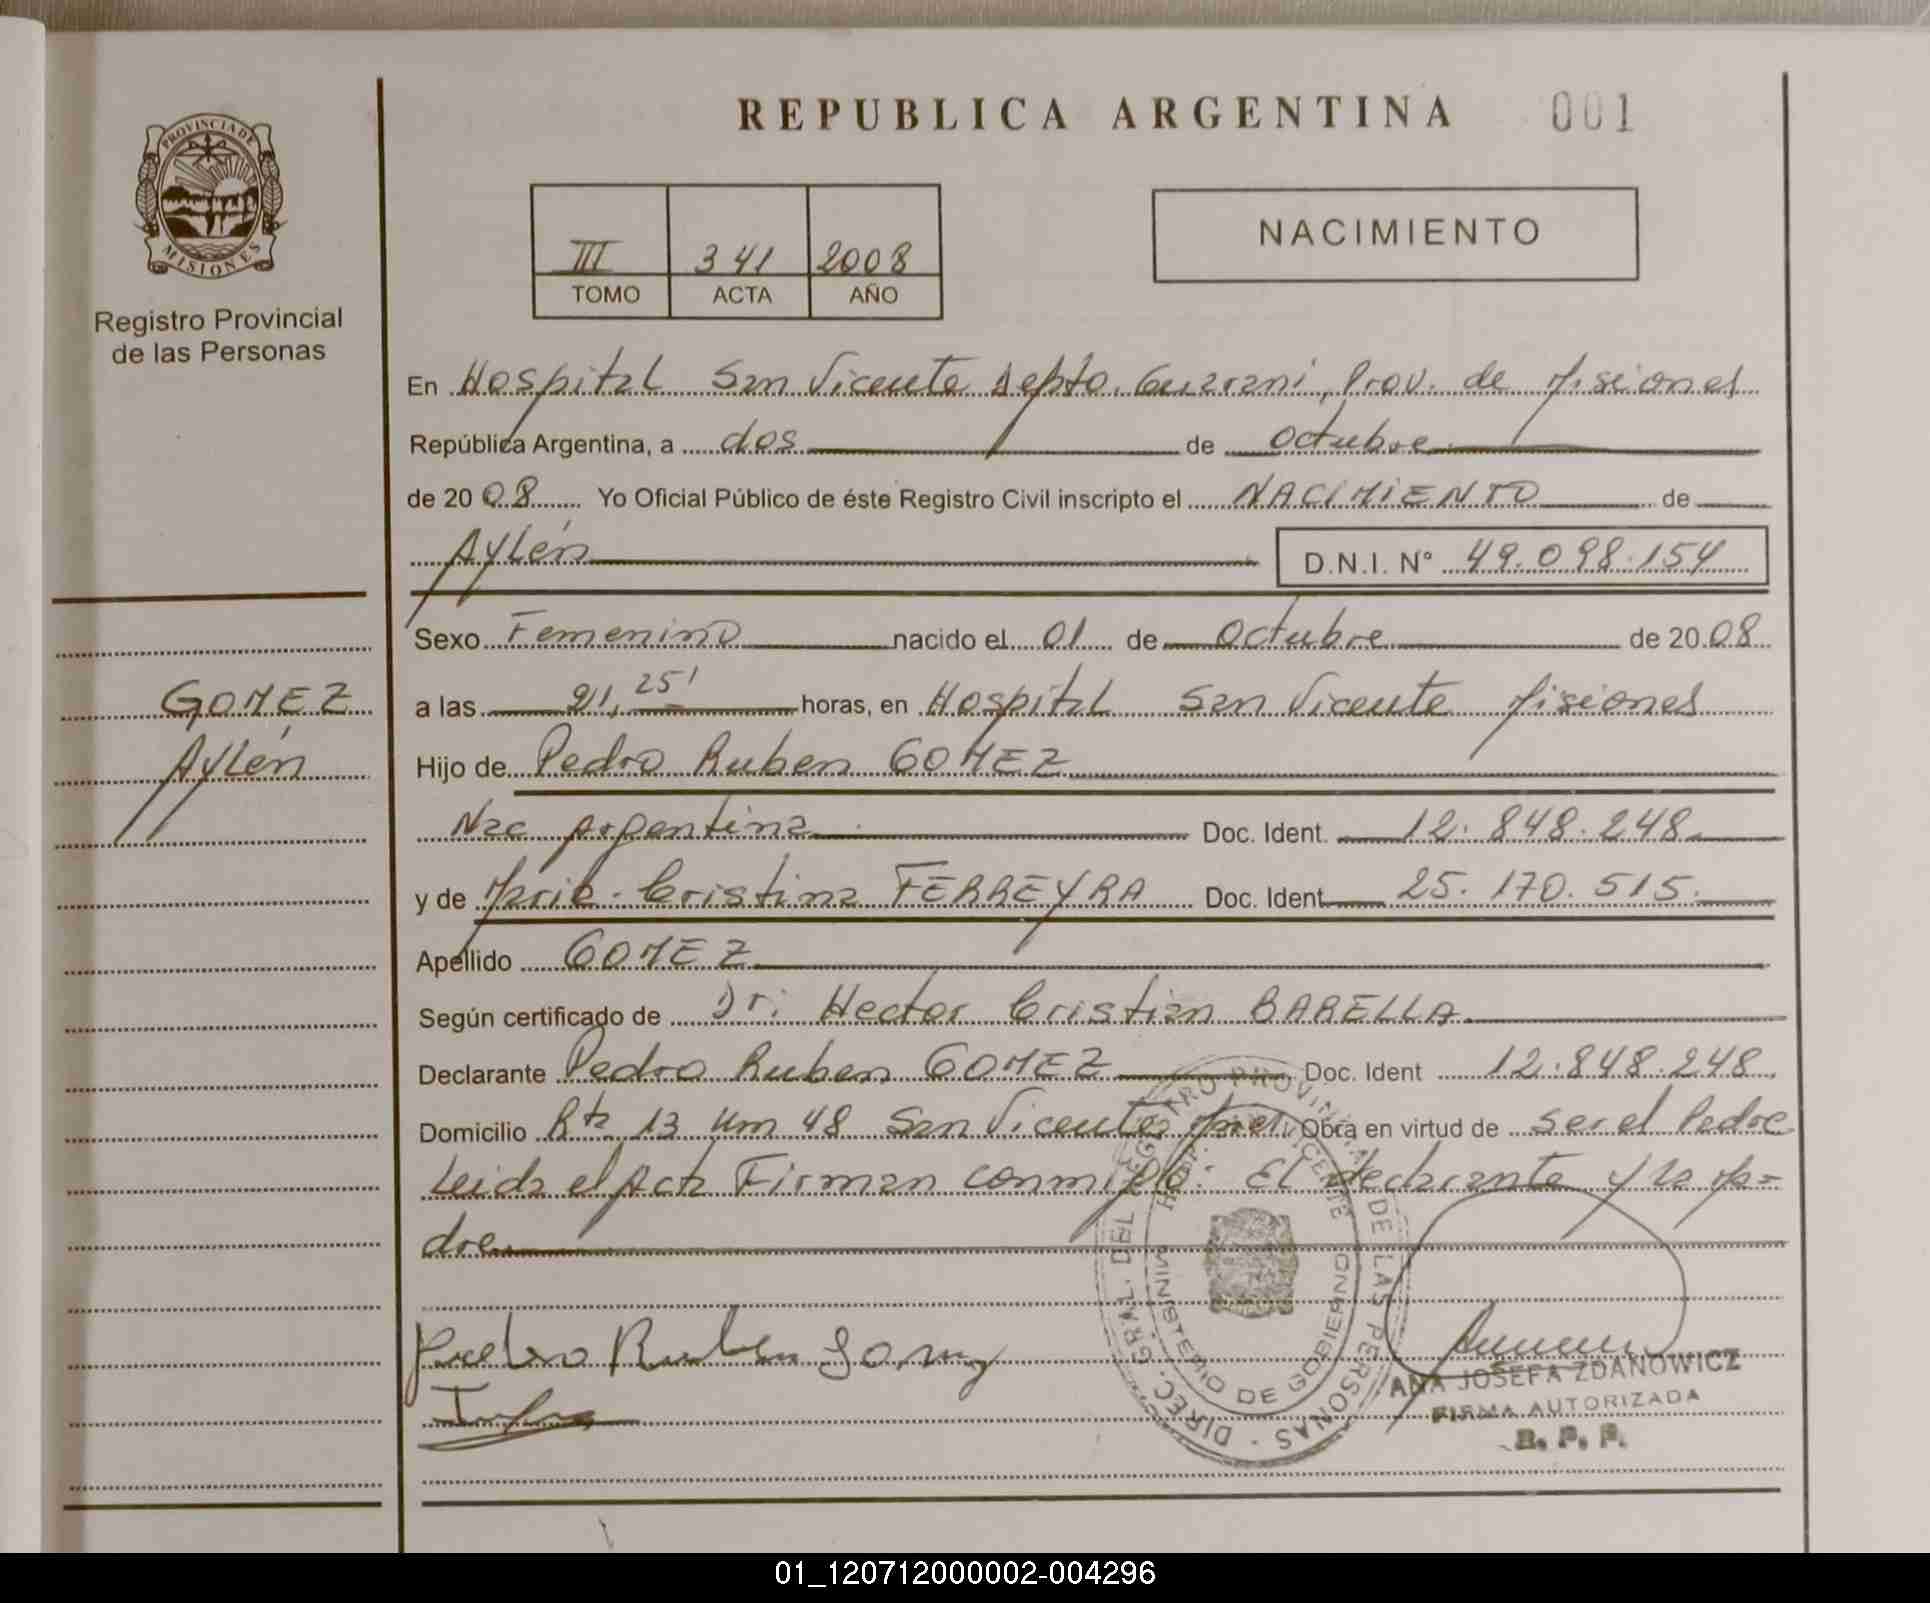 PROVINCIA DE
MISIONES
Registro Provincial
de las Personas
GOMEZ
Aylén
REPUBLICA ARGENTINA 001
III 341 2008
TOMO ACTA AÑO
NACIMIENTO
En Hospital San Vicente Depto. Guarani, Prov. de Misiones
República Argentina, a dos de octubre
de 2008 Yo Oficial Público de éste Registro Civil inscripto el NACIMIENTO de
Aylén D.N.I. N° 49.098.154
Sexo Femenino nacido el 01 de Octubre de 2008
a las 21,25' horas, en Hospital San Vicente Misiones
Hijo de Pedro Ruben GOMEZ
Nac Argentina Doc. Ident. 12.848.248
y de Maria Cristina FERREYRA Doc. Ident 25.170.515.
Apellido GOMEZ
Según certificado de Dr. Hector Cristian BARELLA
Declarante Pedro Ruben GOMEZ Doc. Ident 12.848.248.
Domicilio Rta 13 Km 48 San Vicente Mnes Obra en virtud de ser el Padre
Leida el Acta Firman conmigo: El declarante y la Ma=
dre
Pedro Ruben Gomez
DIREC. GRAL. DEL REGISTRO PROVINCIAL DE LAS PERSONAS
MINISTERIO DE GOBIERNO
ANA JOSEFA ZDANOWICZ
FIRMA AUTORIZADA
R. P. P.
01_120712000002-004296